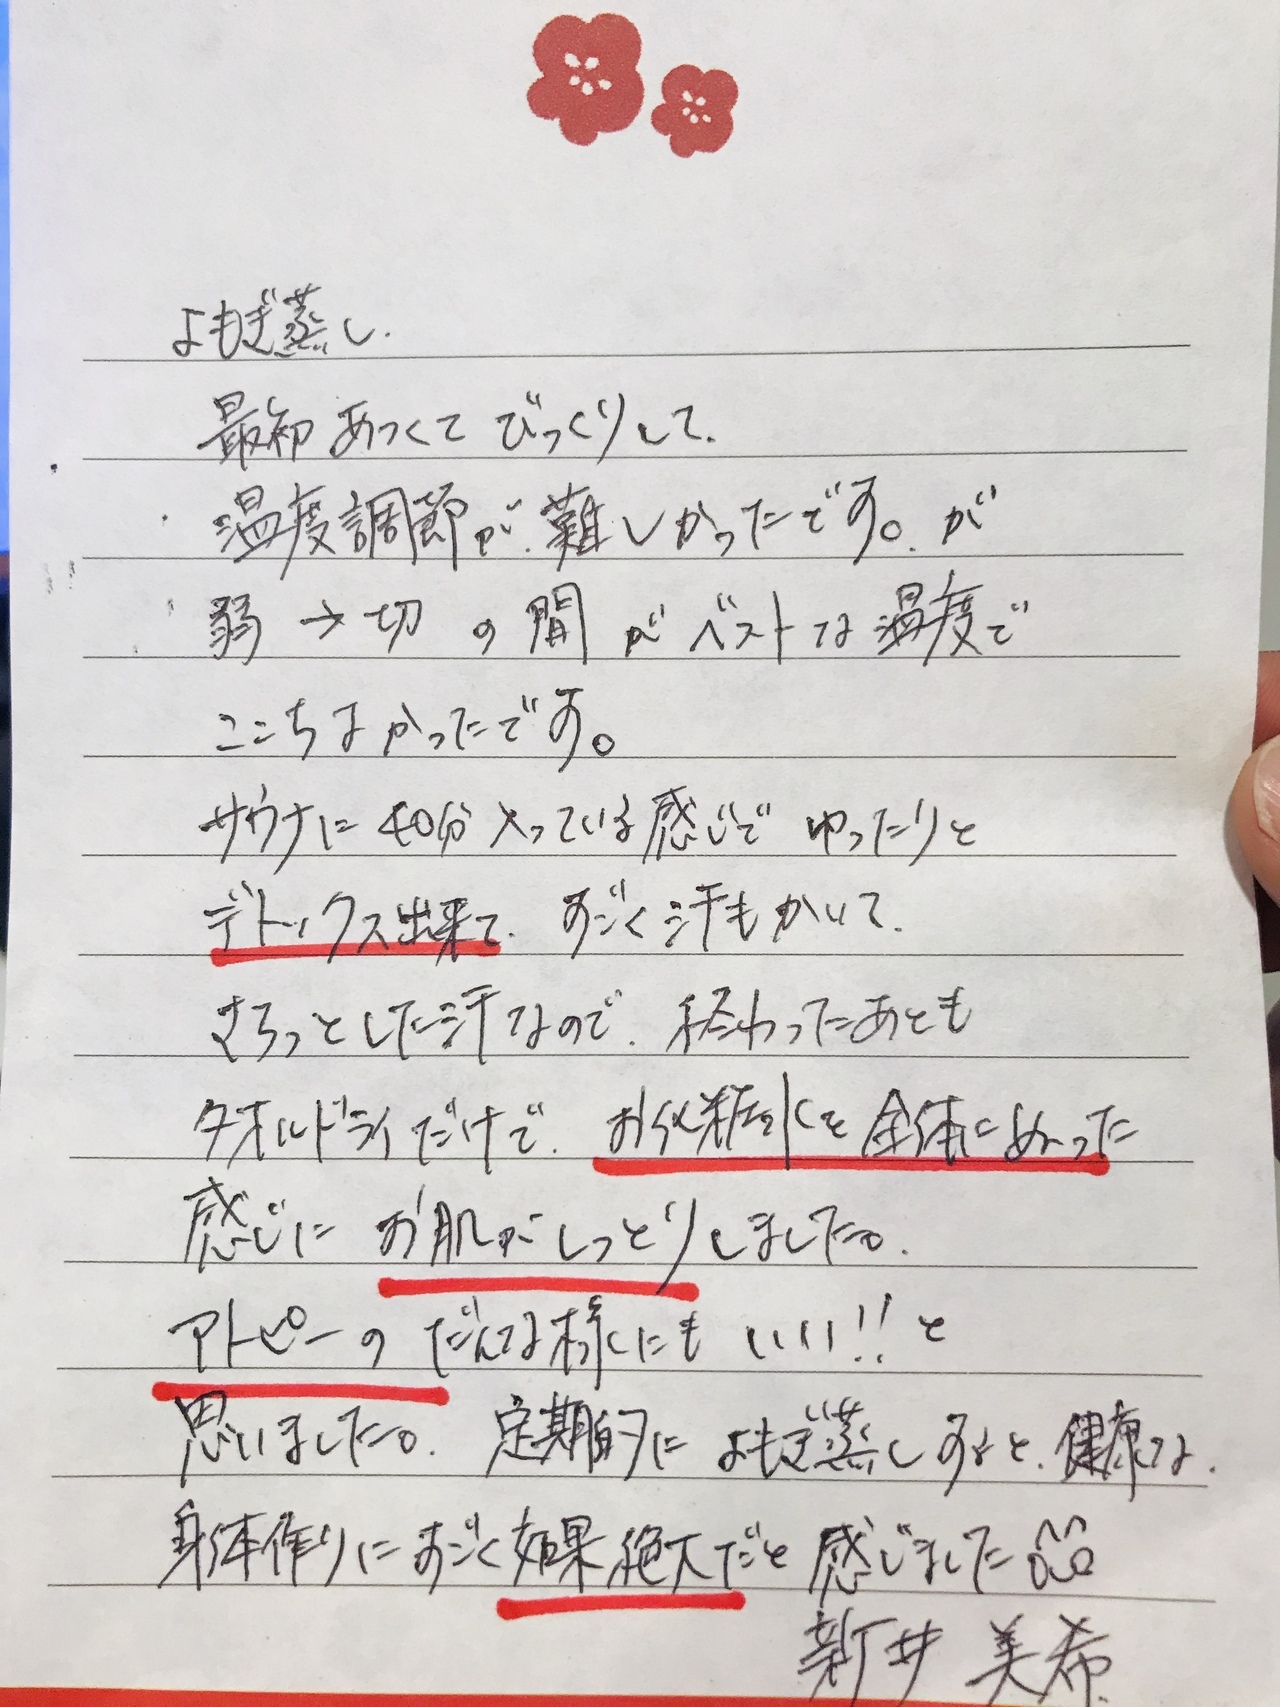 よもぎ蒸し.
最初あつくてびっくりして、
温度調節が、難しかったです。が
弱→切 の間がベストな温度で
ここちよかったです。
サウナに40分入っている感じでゆったりと
デトックス出来て、すごく汗もかいて、
さらっとした汗なので、終わったあとも
タオルドライだけで、お化粧水を全体にぬった
感じにお肌がしっとりしました。
アトピーのだんな様にもいい!!と
思いました。定期的によもぎ蒸しすると、健康な、
身体作りにすごく効果絶大だと感じました
新井 美希